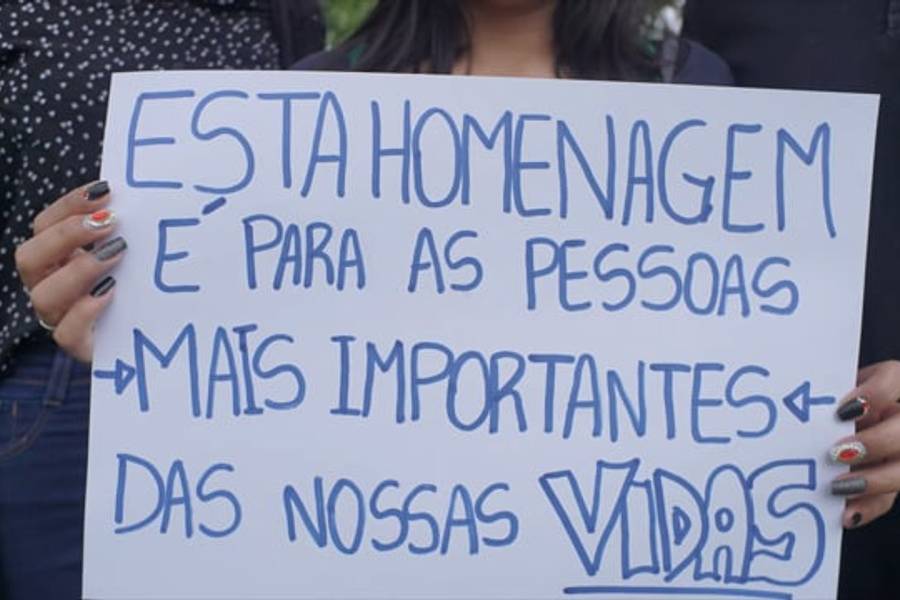 ESTA HOMENAGEM
É PARA AS PESSOAS
→MAIS IMPORTANTES←
DAS NOSSAS VIDAS